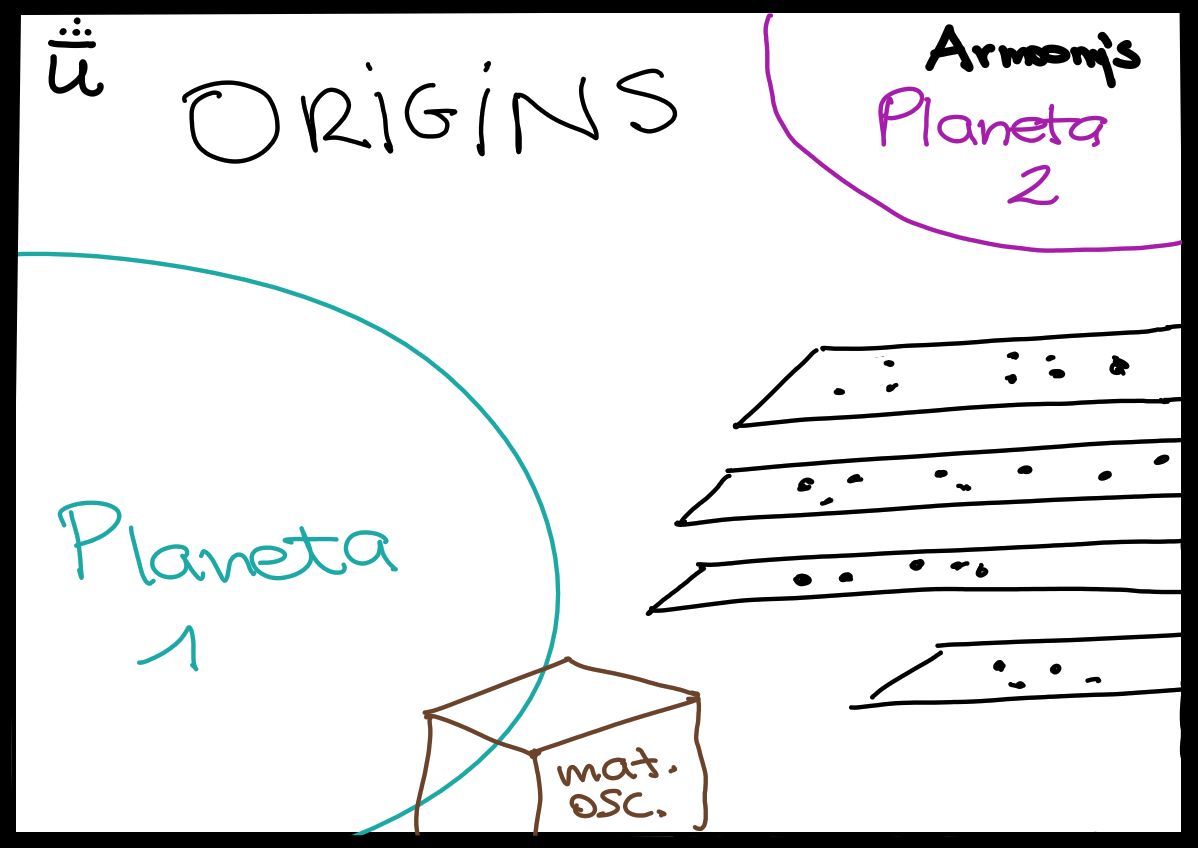 ü
ORIGINS
Armony's
Planeta
2
Planeta
1
mat.
osc.